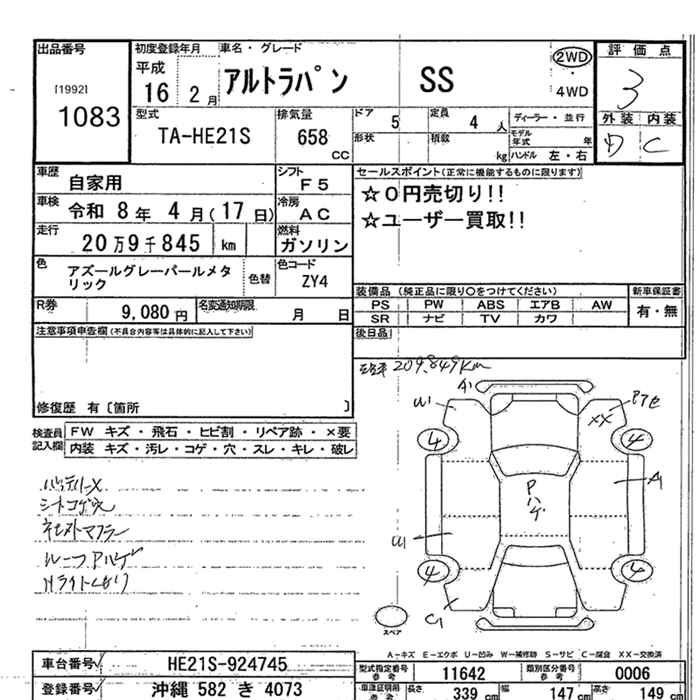 出品番号
[1992]
1083
初度登録年月
平成
16 2 月
車名・グレード
アルトラパン SS
2WD
・
4WD
評価点
3
外装 内装
D C
型式
TA-HE21S
排気量
658
CC
ドア
5
定員
4 人
ディーラー・並行
形状
積数
kg
モデル年式
年
ハンドル 左・右
車歴
自家用
シフト
F5
車検
令和 8年 4月(17日)
冷房
AC
走行
20万9千845 km
燃料
ガソリン
色
アズールグレーパールメタリック
色替
色コード
ZY4
R券
9,080 円
名変通知期限
月 日
セールスポイント(正常に機能するものに限ります)
☆0円売切り!!
☆ユーザー買取!!
装備品 (純正品に限り○をつけてください)
PS PW ABS エアB AW
SR ナビ TV カワ
新車保証書
有・無
後日品
注意事項申告欄(不具合内容等は具体的に記入して下さい)
修復歴 有〔箇所 〕
検査員記入欄
FW キズ・飛石・ヒビ割・リペア跡・×要
内装 キズ・汚レ・コゲ・穴・スレ・キレ・破レ
バッテリーX
シートコゲ穴
社外マフラー
ルーフPハゲ
Hライトくもり
209.849km
A1
W1
XX
4
4
A1
Pハゲ
W1
4
4
C1
スペア
A-キズ E-エクボ U-凹み W-補修跡 S-サビ C-腐食 XX-交換済
車台番号
HE21S-924745
登録番号
沖縄 582 き 4073
型式指定番号
参考
11642
類別区分番号
参考
0006
長さ
339 cm
幅
147 cm
高さ
149 cm